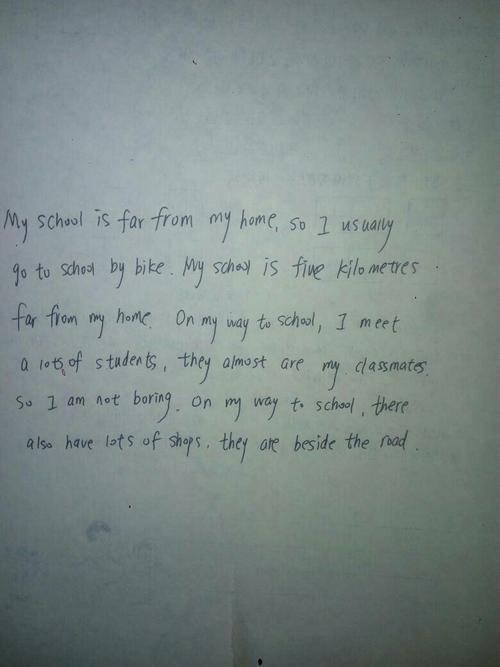 My school is far from my home, so I usually
go to school by bike. My school is five kilometres
far from my home. On my way to school, I meet
a lots of students, they almost are my classmates.
So I am not boring. On my way to school, there
also have lots of shops. they are beside the road.